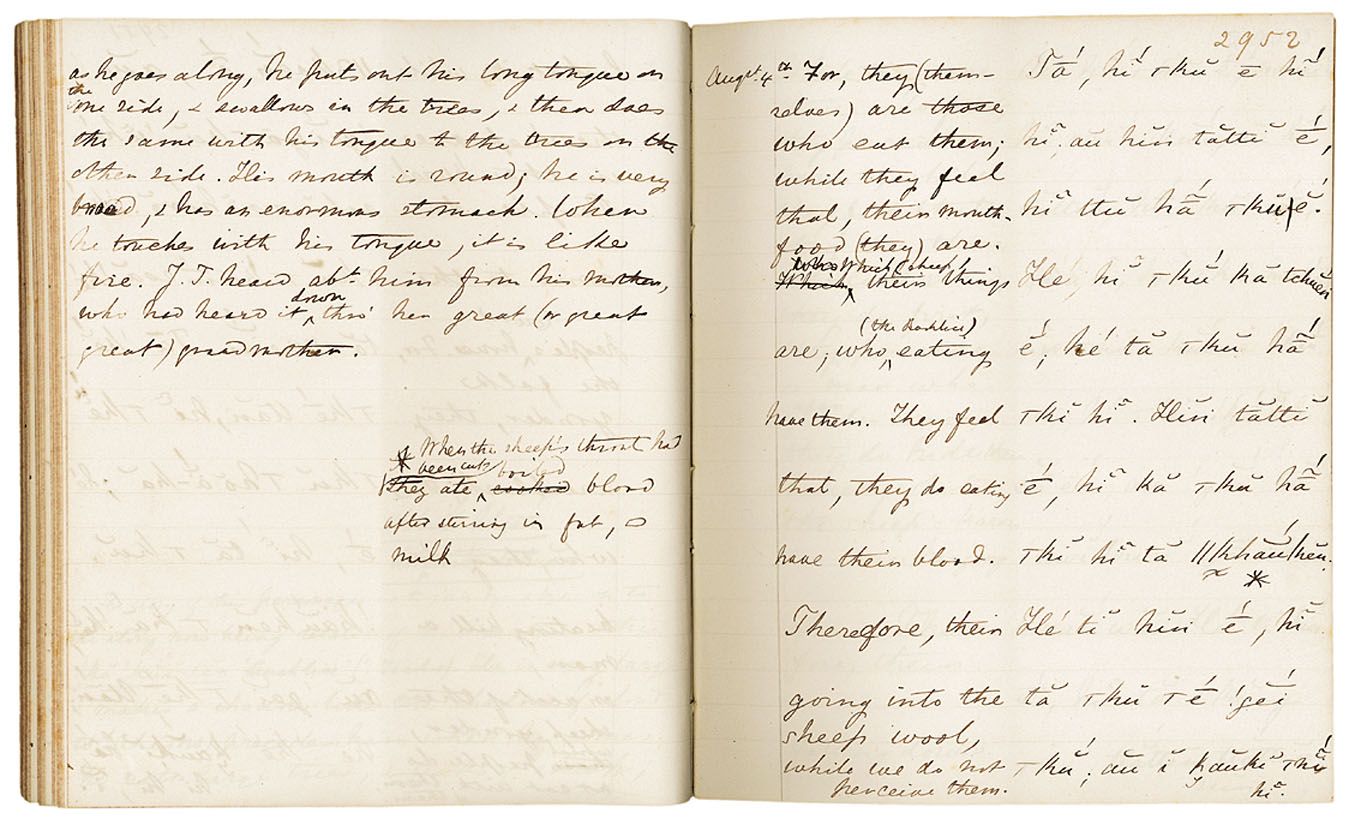 as he goes along, he puts out his long tongue on
the
one side, & swallows in the trees, & then does
the same with his tongue to the trees on the
other side. His mouth is round; he is very
broad, & has an enormous stomach. When
he touches with his tongue, it is like
fire. J.T. heard abt him from his mother,
who had heard it down thro' her great (or great
great) grandmother.
* When the sheep's throat had
been cut
they ate boiled cooked blood
after stirring in fat, or
milk
2952
Augst 4th For, they (them-
selves) are those
who eat them;
while they feel
that, their mouth-
food (they) are.
Which their things
(the Rachlin)
are; who eating
have them. They feel
that, they do eating
have their blood.
Therefore, their
going into the
sheep's wool,
while we do not
perceive them.
Tā́, hĭ̃ ꞇkŭ́ ē hĭ́
hĭ̃; aŭ hĭn tắttĭ é,
hĭ̃ ttŭ hā̃́ ꞇkŭ é.
Hé, hĭ̃ ꞇkŭ́ kă tchuĕn
é, hé tă ꞇkŭ hā̃́
ꞇkĭ hĭ̃. Hĭn tắttĭ
é, hĭ̃ kă ꞇkŭ hā̃́
ꞇkĭ hĭ̃ tă ǁkhăúkĕn.
*
Hé tĭ hĭn é, hĭ̃
tă ꞇkŭ ꞇé !géi
ꞇkŭ́; aŭ ĭ kaŭkĭ ꞇnĭ̃
hĭ̃.